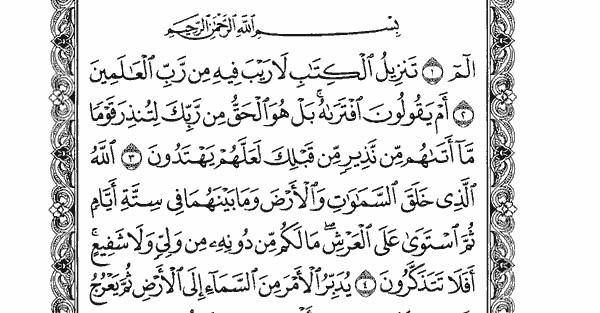 بِسْمِ ٱللَّهِ ٱلرَّحْمَٰنِ ٱلرَّحِيمِ
الٓمٓ ١ تَنزِيلُ ٱلْكِتَٰبِ لَا رَيْبَ فِيهِ مِن رَّبِّ ٱلْعَٰلَمِينَ
٢ أَمْ يَقُولُونَ ٱفْتَرَىٰهُ ۚ بَلْ هُوَ ٱلْحَقُّ مِن رَّبِّكَ لِتُنذِرَ قَوْمًا
مَّآ أَتَىٰهُم مِّن نَّذِيرٍ مِّن قَبْلِكَ لَعَلَّهُمْ يَهْتَدُونَ ٣ ٱللَّهُ
ٱلَّذِى خَلَقَ ٱلسَّمَٰوَٰتِ وَٱلْأَرْضَ وَمَا بَيْنَهُمَا فِى سِتَّةِ أَيَّامٍ
ثُمَّ ٱسْتَوَىٰ عَلَى ٱلْعَرْشِ ۖ مَا لَكُم مِّن دُونِهِۦ مِن وَلِىٍّ وَلَا شَفِيعٍ ۚ
أَفَلَا تَتَذَكَّرُونَ ٤ يُدَبِّرُ ٱلْأَمْرَ مِنَ ٱلسَّمَآءِ إِلَى ٱلْأَرْضِ ثُمَّ يَعْرُجُ